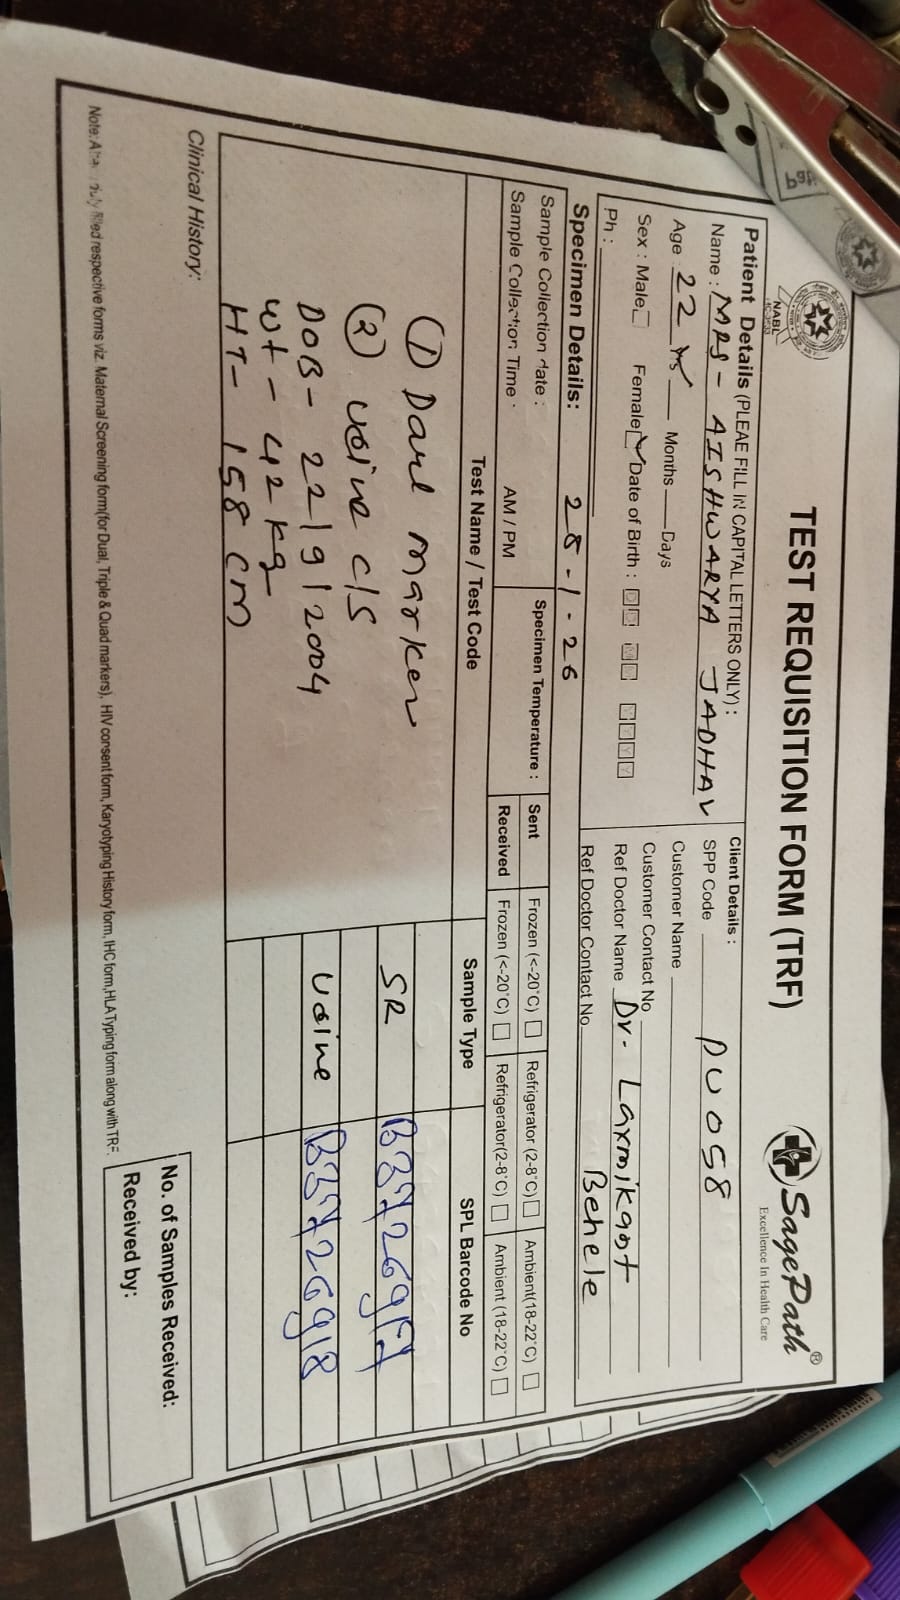 TEST REQUISITION FORM (TRF)
NABL
SagePath®
Excellence In Health Care
Patient Details (PLEAE FILL IN CAPITAL LETTERS ONLY) :
Name : MRS - AISHWARYA JADHAV
Age : 22 yrs Months Days
Sex : Male Female Date of Birth : D D M M Y Y Y Y
Ph :
Client Details :
SPP Code PU058
Customer Name
Customer Contact No
Ref Doctor Name Dr- Laxmikant
Behele
Ref Doctor Contact No
Specimen Details: 28-1-26
Sample Collection date :
Sample Collection Time : AM / PM
Specimen Temperature :
Sent Frozen (<-20°C) Refrigerator (2-8°C) Ambient(18-22°C)
Received Frozen (<-20°C) Refrigerator(2-8°C) Ambient (18-22°C)
Test Name / Test Code Sample Type SPL Barcode No
① Daul marker SR B3726917
② Urine C/S Urine B3726918
DOB- 22/9/2004
wt - 42 kg
HT- 158 cm
Clinical History:
No. of Samples Received:
Received by:
Note: duly filled respective forms viz. Maternal Screening form(for Dual, Triple & Quad markers), HIV consent form, Karyotyping History form, IHC form,HLA Typing form along with TRF.